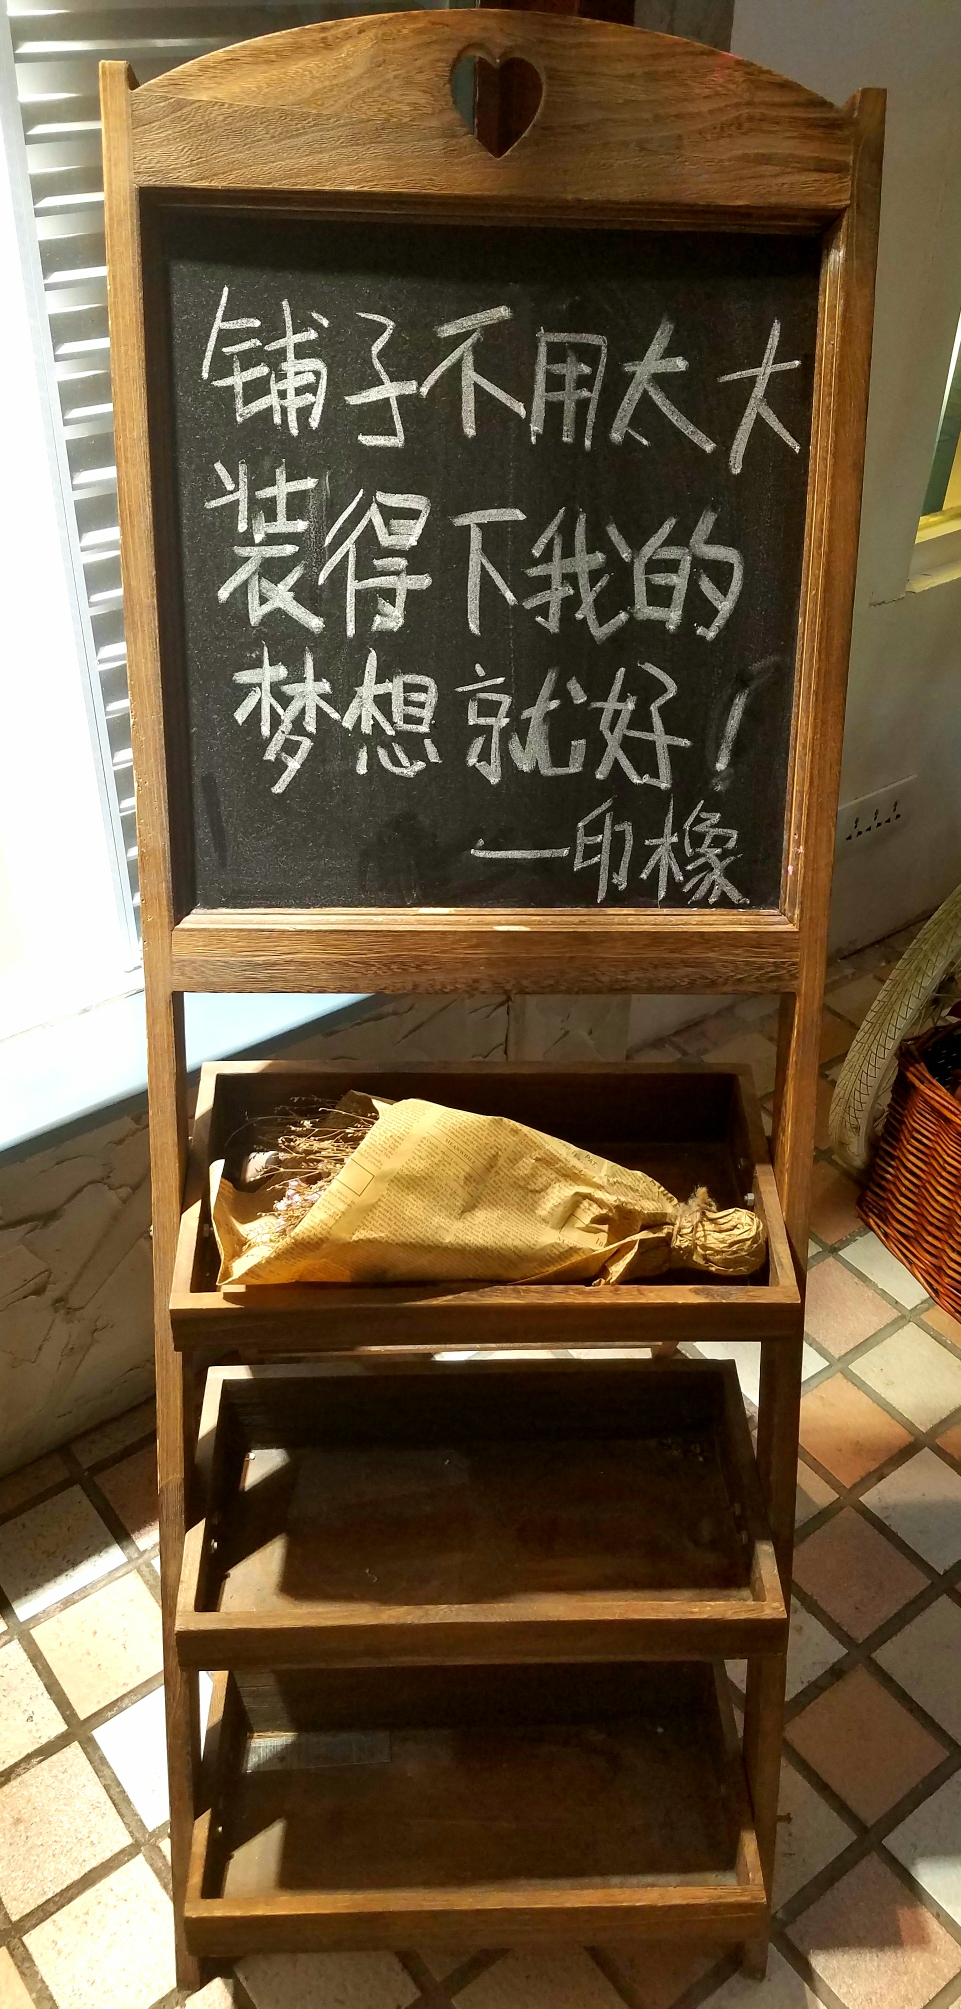 铺子不用太大
装得下我的
梦想就好！
—印橡